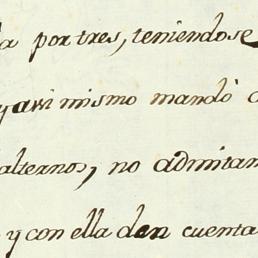 a por tres, teniendose
y assi mismo mandò
alternos, no admitan
y con ella den cuenta